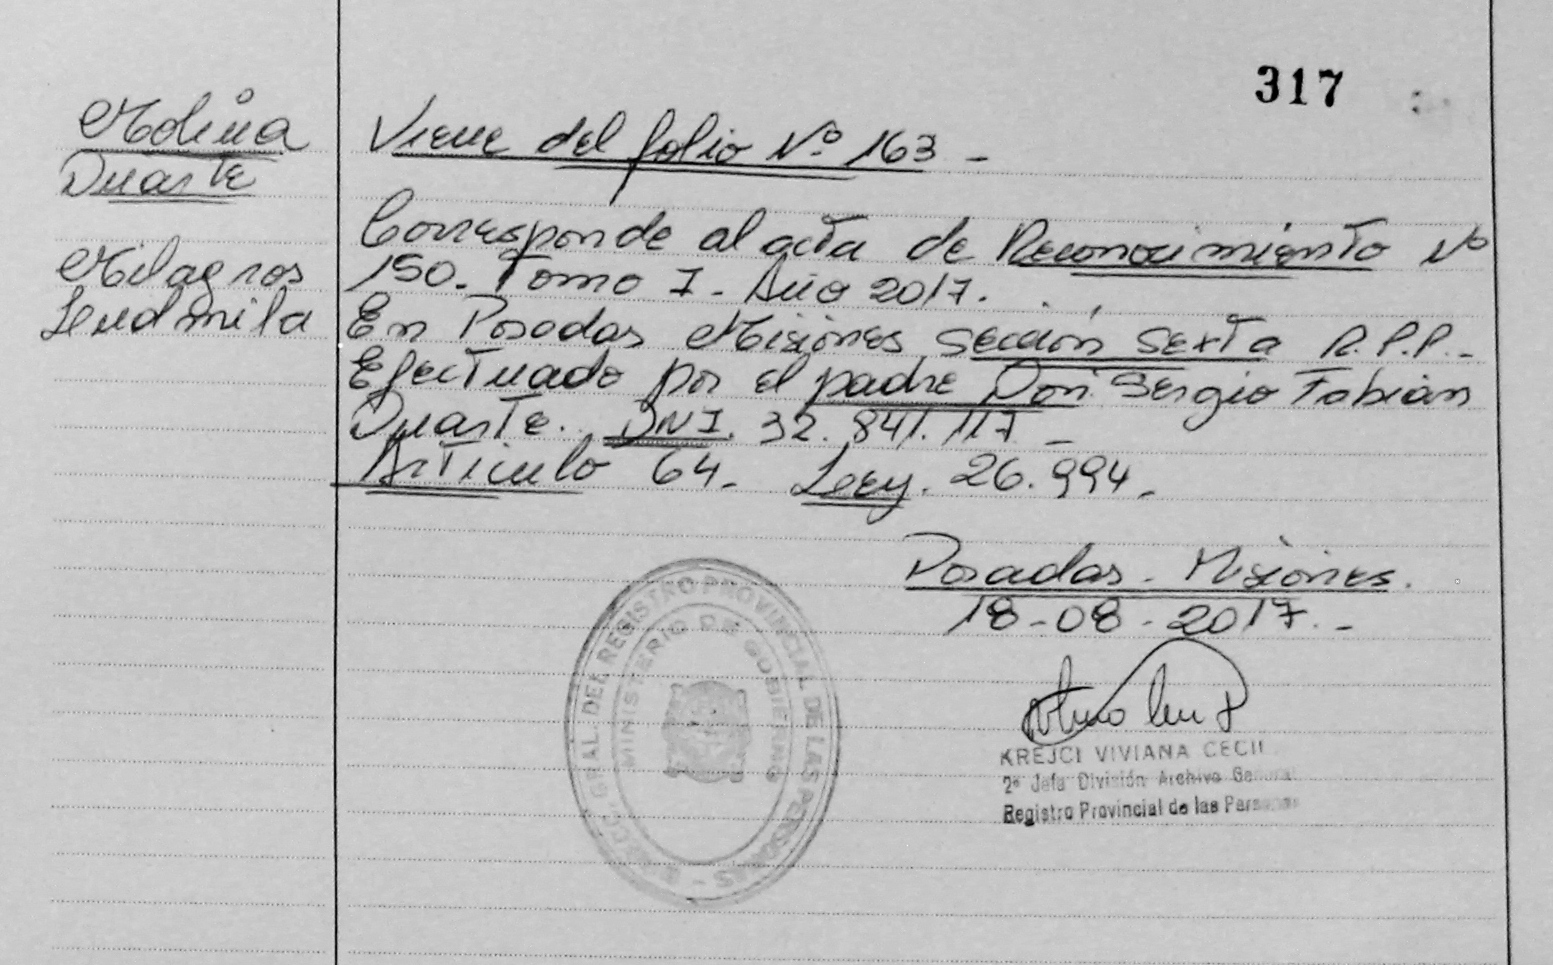 317
Molina
Duarte
Milagros
Leudmila
Viene del folio Nº 163 -
Corresponde al acta de Reconocimiento Nº
150. Tomo I - Año 2017.
En Posadas Misiones Sección Sexta R.P.P.-
Efectuado por el padre Don Sergio Fabián
Duarte. DNI. 32.841.117 -
Artículo 64. Ley. 26.994 -
Posadas - Misiones.
18-08-2017.-
GRAL. DEL REGISTRO PROVINCIAL DE LAS PERSONAS -
MINISTERIO DE GOBIERNO
KREJCI VIVIANA CECIL
2º Jefa División Archivo General
Registro Provincial de las Personas